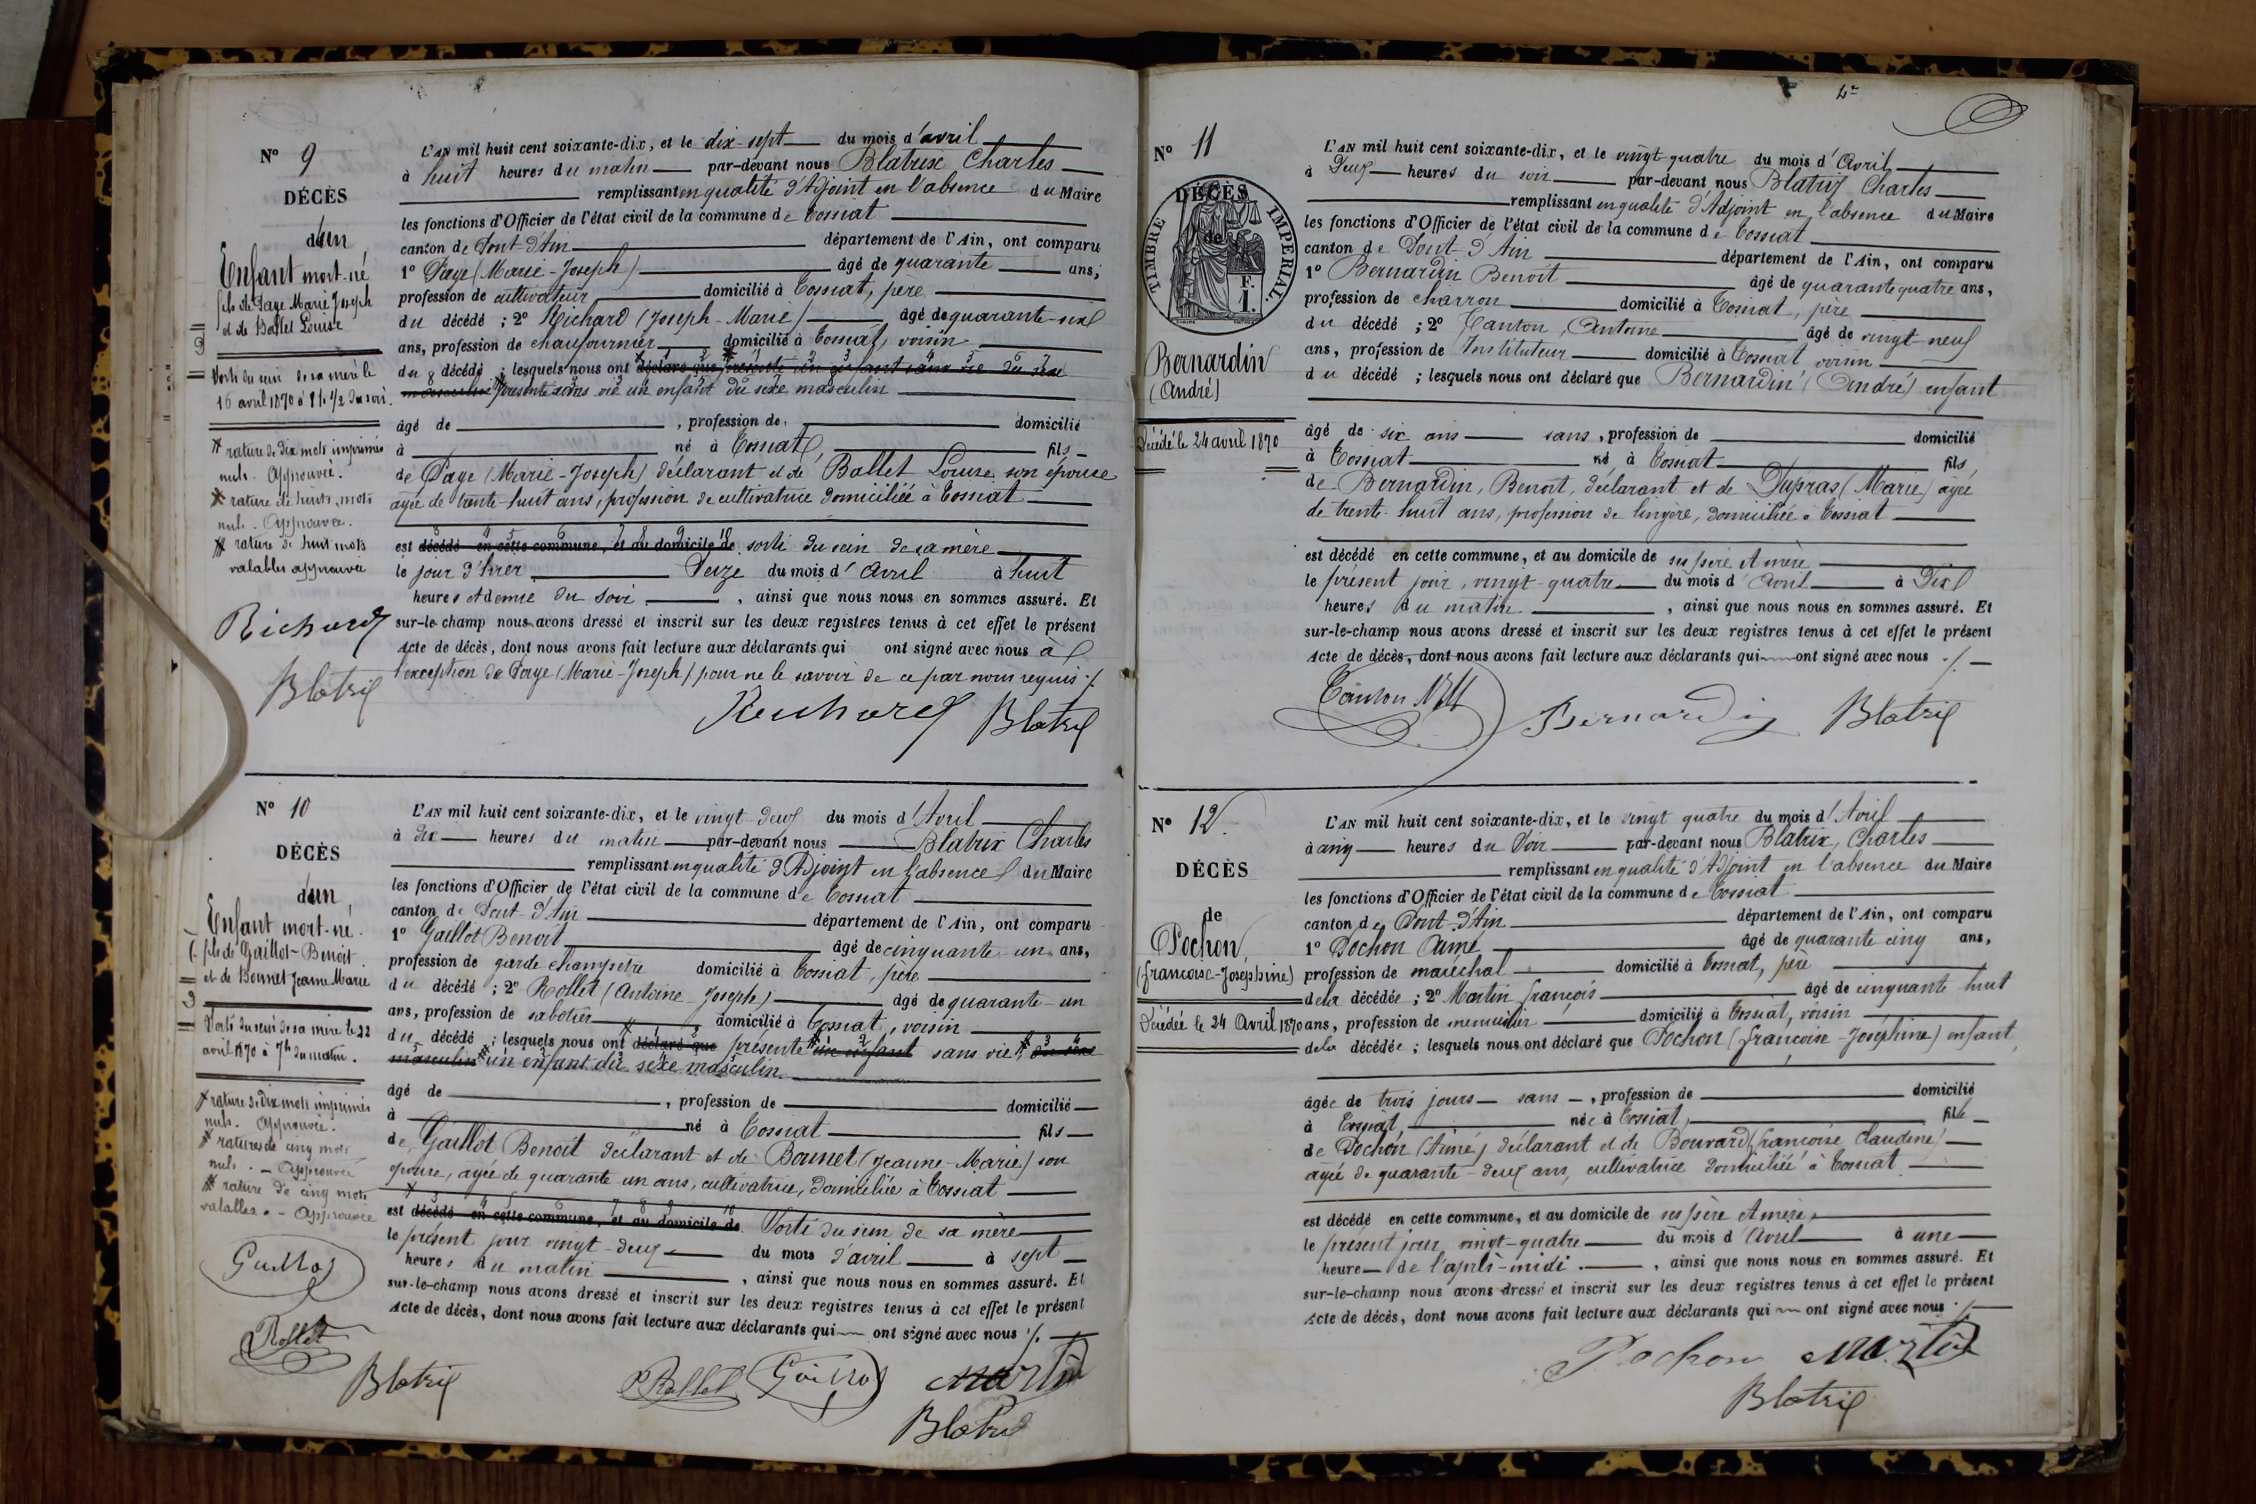 N° 9
DÉCÈS
d'un
Enfant mort-né
fils de Page Marie Joseph
et de Ballet Louise
Sorti du sein de sa mère le
16 avril 1870 à 8 h 1/2 du soir.
rature de dix mots imprimés
nuls. Approuvée.
rature de huit mots
nuls. Approuvée.
rature de huit mots
valables approuvée
Richard
Blatrix
L'AN mil huit cent soixante-dix, et le dix-sept du mois d'avril
à huit heures du matin par-devant nous Blatrix Charles
remplissant en qualité d'Adjoint en l'absence du Maire
les fonctions d'Officier de l'état civil de la commune de Cossiat
canton de Pont-d'Ain département de l'Ain, ont comparu
1° Page (Marie-Joseph) âgé de quarante ans,
profession de cultivateur domicilié à Cossiat, père
du décédé ; 2° Richard (Joseph-Marie) âgé de quarante-six
ans, profession de chaufournier domicilié à Cossiat, voisin
du décédé ; lesquels nous ont déclaré que présenté un enfant sans vie du sexe
masculin présenté sans vie un enfant du sexe masculin
âgé de , profession de domicilié
à né à Cossiat, fils
de Page (Marie-Joseph) déclarant et de Ballet Louise son épouse
agée de trente-huit ans, profession de cultivatrice domiciliée à Cossiat
est décédé en cette commune, et au domicile de sorti du sein de sa mère
le jour d'hier Seize du mois d'Avril à huit
heures et demie du soir , ainsi que nous nous en sommes assuré. Et
sur-le-champ nous avons dressé et inscrit sur les deux registres tenus à cet effet le présent
Acte de décès, dont nous avons fait lecture aux déclarants qui ont signé avec nous à
l'exception de Page (Marie-Joseph) pour ne le savoir de ce par nous requis ./.
Richard Blatrix
N° 10
DÉCÈS
d'un
Enfant mort-né.
fils de Gaillot Benoit
et de Bonnet Jeanne Marie
Sorti du sein de sa mère le 22
avril 1870 à 7 h du matin.
rature de dix mots imprimés
nuls. Approuvée.
ratures de cinq mots
nuls. - Approuvée
rature de cinq mots
valables. - Approuvée
Gaillot
Rollet
Blatrix
L'AN mil huit cent soixante-dix, et le vingt-deux du mois d'Avril
à dix heures du matin par-devant nous Blatrix Charles
remplissant en qualité d'Adjoint en l'absence du Maire
les fonctions d'Officier de l'état civil de la commune de Cossiat
canton de Pont-d'Ain département de l'Ain, ont comparu
1° Gaillot Benoit âgé de cinquante un ans,
profession de garde champêtre domicilié à Cossiat, père
du décédé ; 2° Rollet (Antoine-Joseph) âgé de quarante-un
ans, profession de sabotier domicilié à Cossiat, voisin
du décédé ; lesquels nous ont déclaré que présenté un enfant sans vie du sexe
masculin un enfant du sexe masculin
âgé de , profession de domicilié
à né à Cossiat fils
de Gaillot Benoit déclarant et de Bonnet (Jeanne-Marie) son
épouse, agée de quarante un ans, cultivatrice, domiciliée à Cossiat
est décédé en cette commune, et au domicile de Sorti du sein de sa mère
le présent jour vingt-deux du mois d'avril à sept
heures du matin , ainsi que nous nous en sommes assuré. Et
sur-le-champ nous avons dressé et inscrit sur les deux registres tenus à cet effet le présent
Acte de décès, dont nous avons fait lecture aux déclarants qui ont signé avec nous ./.
Rollet Gaillot Martin
Blatrix
N° 11
DÉCÈS
de
TIMBRE IMPÉRIAL.
F.
1.
Bernardin
(André)
Décédé le 24 avril 1870
L'AN mil huit cent soixante-dix, et le vingt-quatre du mois d'Avril
à Deux heures du soir par-devant nous Blatrix Charles
remplissant en qualité d'Adjoint en l'absence du Maire
les fonctions d'Officier de l'état civil de la commune de Cossiat
canton de Pont-d'Ain département de l'Ain, ont comparu
1° Bernardin Benoit âgé de quarante quatre ans,
profession de charron domicilié à Cossiat, père
du décédé ; 2° Tanton, Antoine âgé de vingt neuf
ans, profession de Instituteur domicilié à Cossiat voisin
du décédé ; lesquels nous ont déclaré que Bernardin (André) enfant
âgé de six ans sans , profession de domicilié
à Cossiat né à Cossiat fils
de Bernardin, Benoit, déclarant et de Dupras (Marie) agée
de trente-huit ans, profession de lingère, domiciliée à Cossiat
est décédé en cette commune, et au domicile de ses père et mère
le présent jour, vingt-quatre du mois d'Avril à Dix
heures du matin , ainsi que nous nous en sommes assuré. Et
sur-le-champ nous avons dressé et inscrit sur les deux registres tenus à cet effet le présent
Acte de décès, dont nous avons fait lecture aux déclarants qui ont signé avec nous ./.
Tanton Bernardin Blatrix
N° 12
DÉCÈS
de
Pochon
(françoise-Joséphine)
Décédée le 24 Avril 1870
L'AN mil huit cent soixante-dix, et le vingt quatre du mois d'Avril
à cinq heures du Soir par-devant nous Blatrix, Charles
remplissant en qualité d'Adjoint en l'absence du Maire
les fonctions d'Officier de l'état civil de la commune de Cossiat
canton de Pont-d'Ain département de l'Ain, ont comparu
1° Pochon Aimé âgé de quarante cinq ans,
profession de maréchal domicilié à Cossiat, père
de la décédée ; 2° Martin françois âgé de cinquante huit
ans, profession de menuisier domicilié à Cossiat, voisin
de la décédée ; lesquels nous ont déclaré que Pochon (françoise-Joséphine) enfant,
âgée de trois jours sans , profession de domicilié
à Cossiat, née à Cossiat, fille
de Pochon (Aimé) déclarant et de Bouvard (françoise Claudine)
agée de quarante-deux ans, cultivatrice domiciliée à Cossiat
est décédé en cette commune, et au domicile de ses père et mère,
le présent jour vingt-quatre du mois d'Avril à une
heure de l'après-midi , ainsi que nous nous en sommes assuré. Et
sur-le-champ nous avons dressé et inscrit sur les deux registres tenus à cet effet le présent
Acte de décès, dont nous avons fait lecture aux déclarants qui ont signé avec nous ./.
Pochon Martin
Blatrix